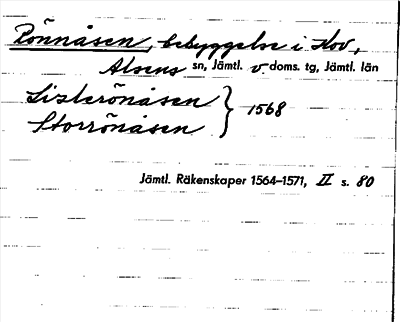 Rönnåsen, bebyggelse i Hov,
Alsens sn, Jämtl. v. doms. tg, Jämtl. län
Lislerönåsen } 1568
Storrönåsen
Jämtl. Räkenskaper 1564–1571, II s. 80